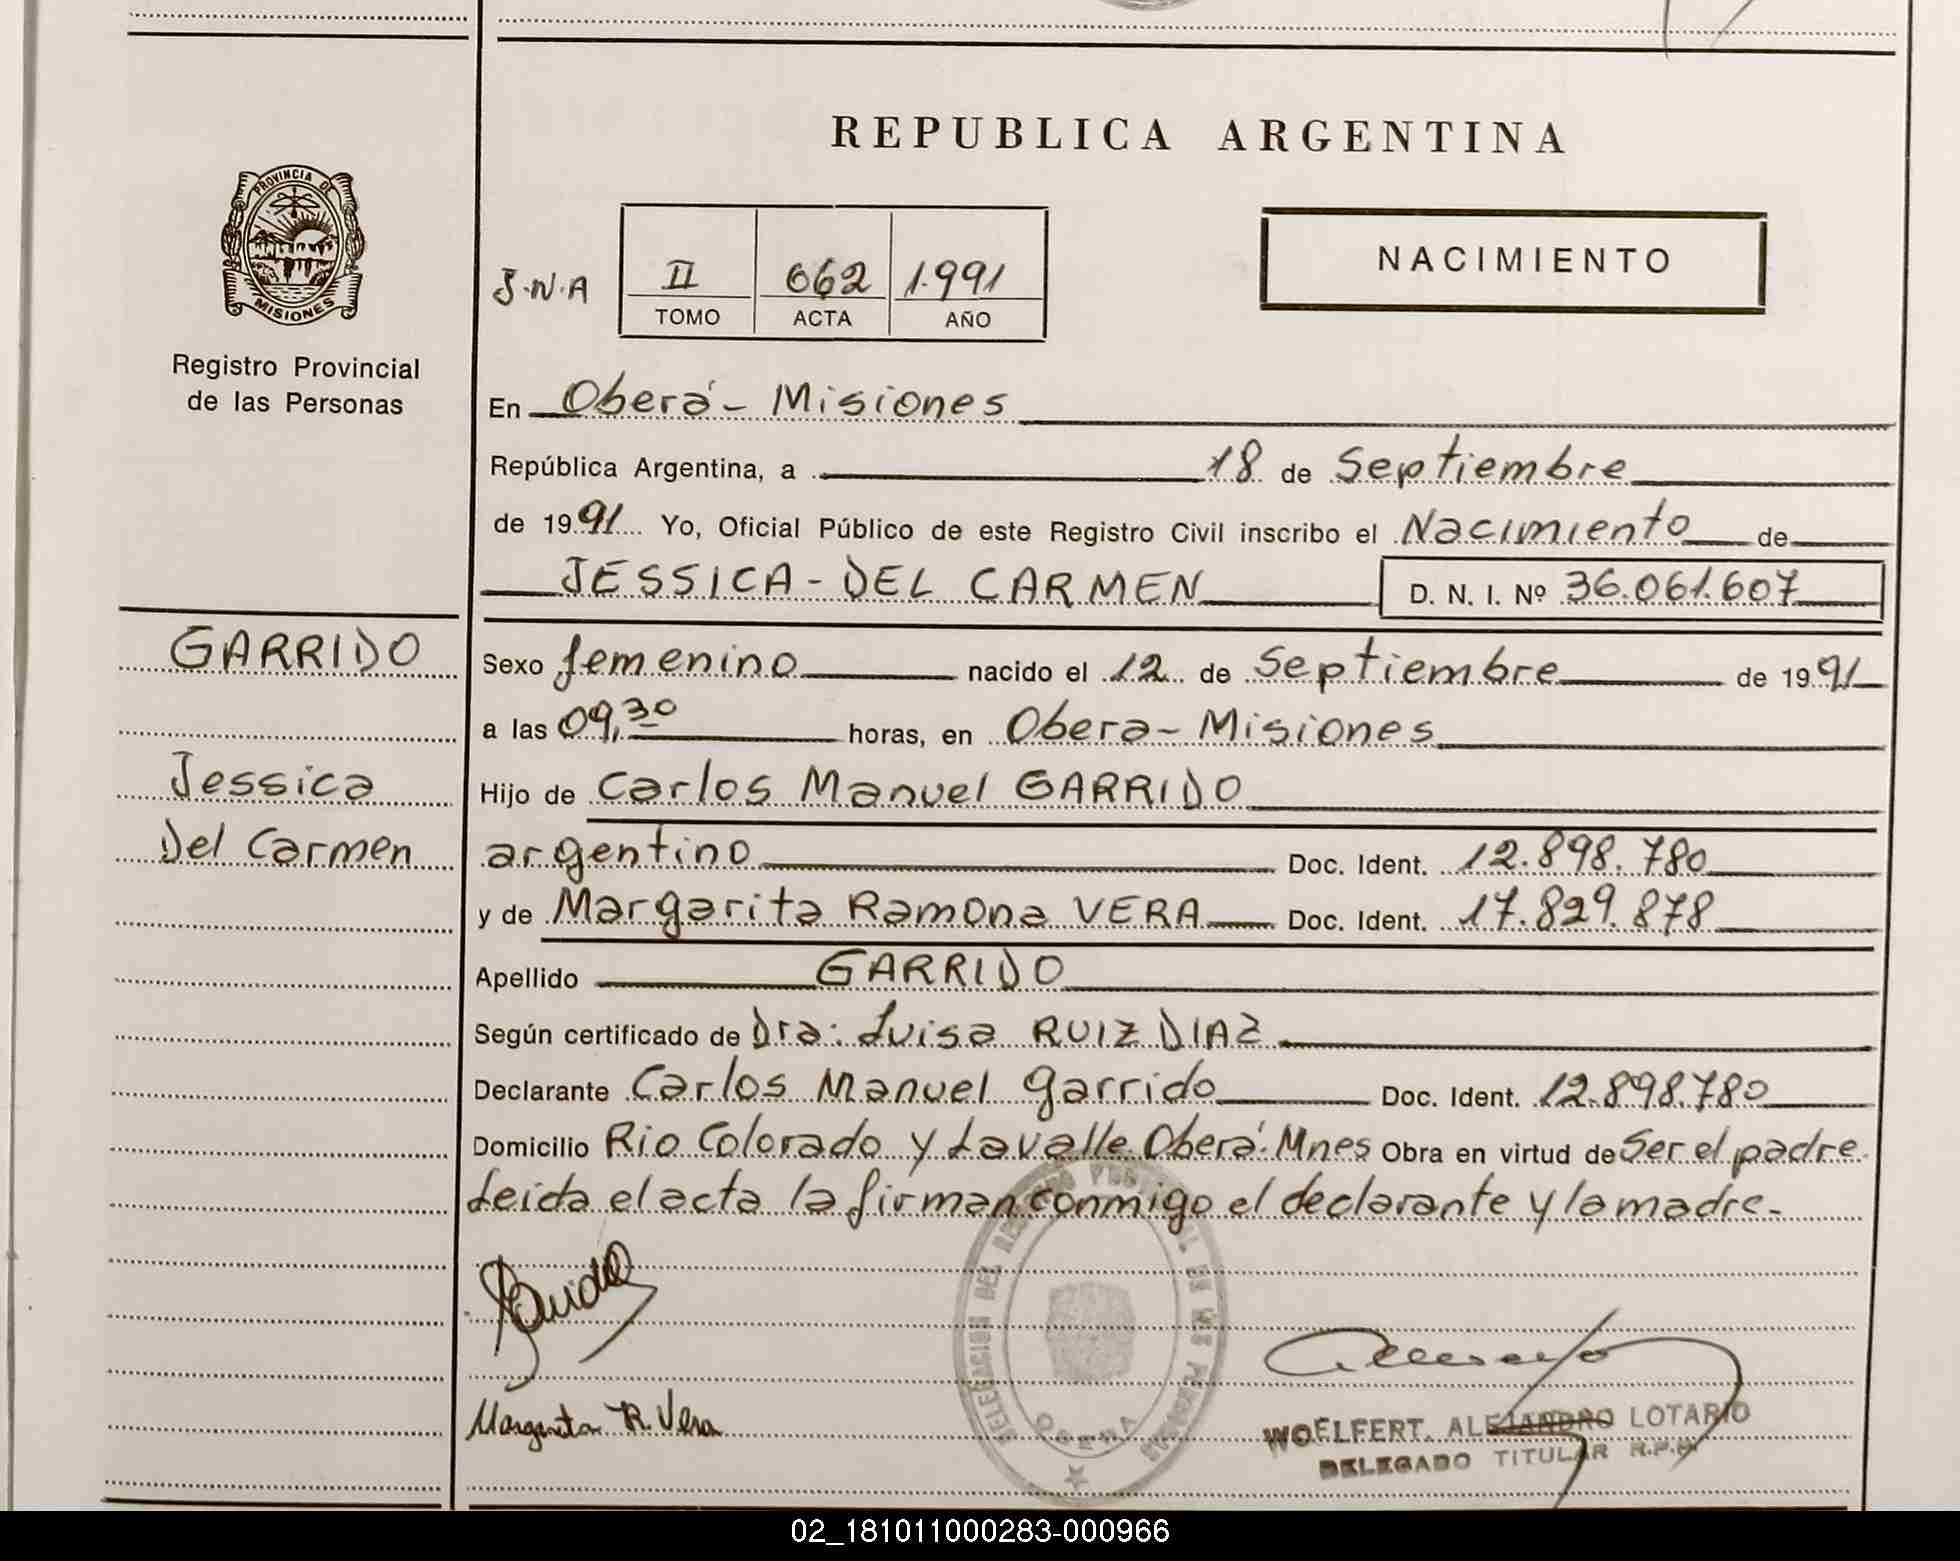 REPUBLICA ARGENTINA
PROVINCIA DE
MISIONES
Registro Provincial
de las Personas
NACIMIENTO
J.N.A II 662 1.991
TOMO ACTA AÑO
En Oberá - Misiones
República Argentina, a 18 de Septiembre
de 1991 Yo, Oficial Público de este Registro Civil inscribo el Nacimiento de
JESSICA - DEL CARMEN D. N. I. Nº 36.061.607
GARRIDO
Jessica
Del Carmen
Sexo femenino nacido el 12 de Septiembre de 1991
a las 09,30 horas, en Obera - Misiones
Hijo de Carlos Manuel GARRIDO
argentino Doc. Ident. 12.898.780
y de Margarita Ramona VERA Doc. Ident. 17.829.878
Apellido GARRIDO
Según certificado de Dra: Luisa RUIZ DIAZ
Declarante Carlos Manuel Garrido Doc. Ident. 12.898.780
Domicilio Rio Colorado y Lavalle. Oberá. Mnes Obra en virtud de Ser el padre.
Leida el acta la firman conmigo el declarante y la madre.-
Garrido
Margarita R. Vera
DELEGACION DEL REGISTRO PROVINCIAL DE LAS PERSONAS
OBERA
WOELFERT, ALEJANDRO LOTARIO
DELEGADO TITULAR R.P.P.
02_181011000283-000966